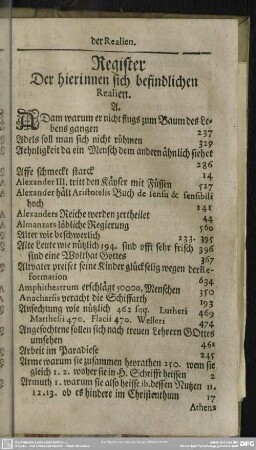 der Realien.
Register
Der hierinnen sich befindlichen
Realien.
A.
ADam warum er nicht flugs zum Baum des Le-
bens gangen 237
Adels soll man sich nicht rühmen 329
Aehnligkeit da ein Mensch dem andern ähnlich siehet
286
Affe schmeckt starck 14
Alexander III. tritt den Käyser mit Füssen 527
Alexander hält Aristotelis Buch de sensu & sensibili
hoch 141
Alexanders Reiche werden zertheilet 44
Almanzars löbliche Regierung 560
Alter wie beschwerlich 233. 395
Alte Leute wie nützlich 394. sind offt sehr frisch 396
sind eine Wolthat Gottes 367
Altvater preiset seine Kinder glückselig wegen der Re-
formation 634
Amphitheatrum erschlägt 50000. Menschen 350
Anacharsis veracht die Schiffarth 193
Anfechtung wie nützlich 462 sqq. Lutheri 469
Matthesii 470. Flacii 470. Welleri 474
Angefochtene sollen sich nach treuen Lehrern GOttes
umsehen 461
Arbeit im Paradiese 245
Arme warum sie zusammen heyrathen 250. wem sie
gleich 1. 2. woher sie in H. Schrifft heisen 2
Armuth 1. warum sie also heisse ib. dessen Nutzen 11.
12. 13. ob es hindere im Christenthum 17
Athens